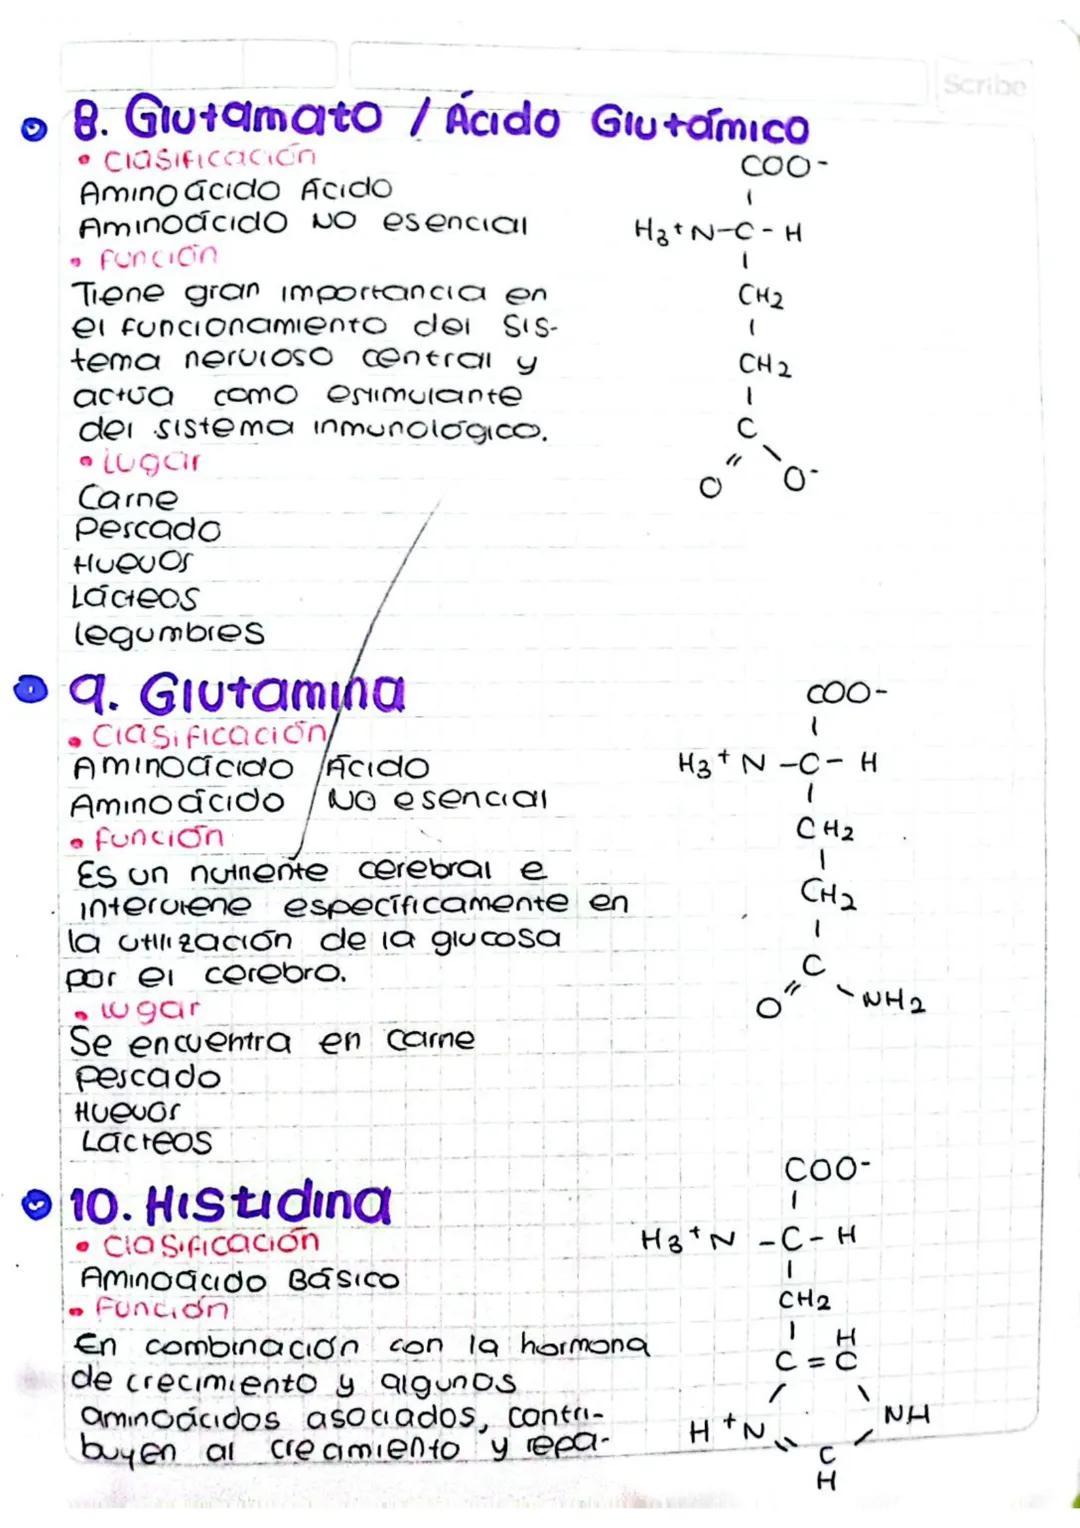 Scribe
8. Glutamato / Ácido Glutámico
• Clasificación
Aminoácido Ácido
Aminoácido NO esencial
• Función
Tiene gran importancia en
el funcionamiento del sis-
tema nervioso central y
actúa como estimulante
del sistema inmunológico.
• Lugar
Carne
Pescado
Huevos
Lácteos
legumbres
COO-
H3+N-C-H
CH2
CH2
C
O O-
9. Glutamina
• Clasificación
Aminoácido Ácido
Aminoácido NO esencial
• Función
Es un nutriente cerebral e
interviene específicamente en
la utilización de la glucosa
por el cerebro.
• lugar
Se encuentra en carne
Pescado
Huevos
Lácteos
COO-
H3+N-C-H
CH2
CH2
C
O NH2
10. Histidina
• Clasificación
Aminoácido Básico
• Función
En combinación con la hormona
de crecimiento y algunos
aminoácidos asociados, contri-
buyen al crecimiento y repa-
COO-
H3+N-C-H
CH2
H
C=C
H+N NH
C
H